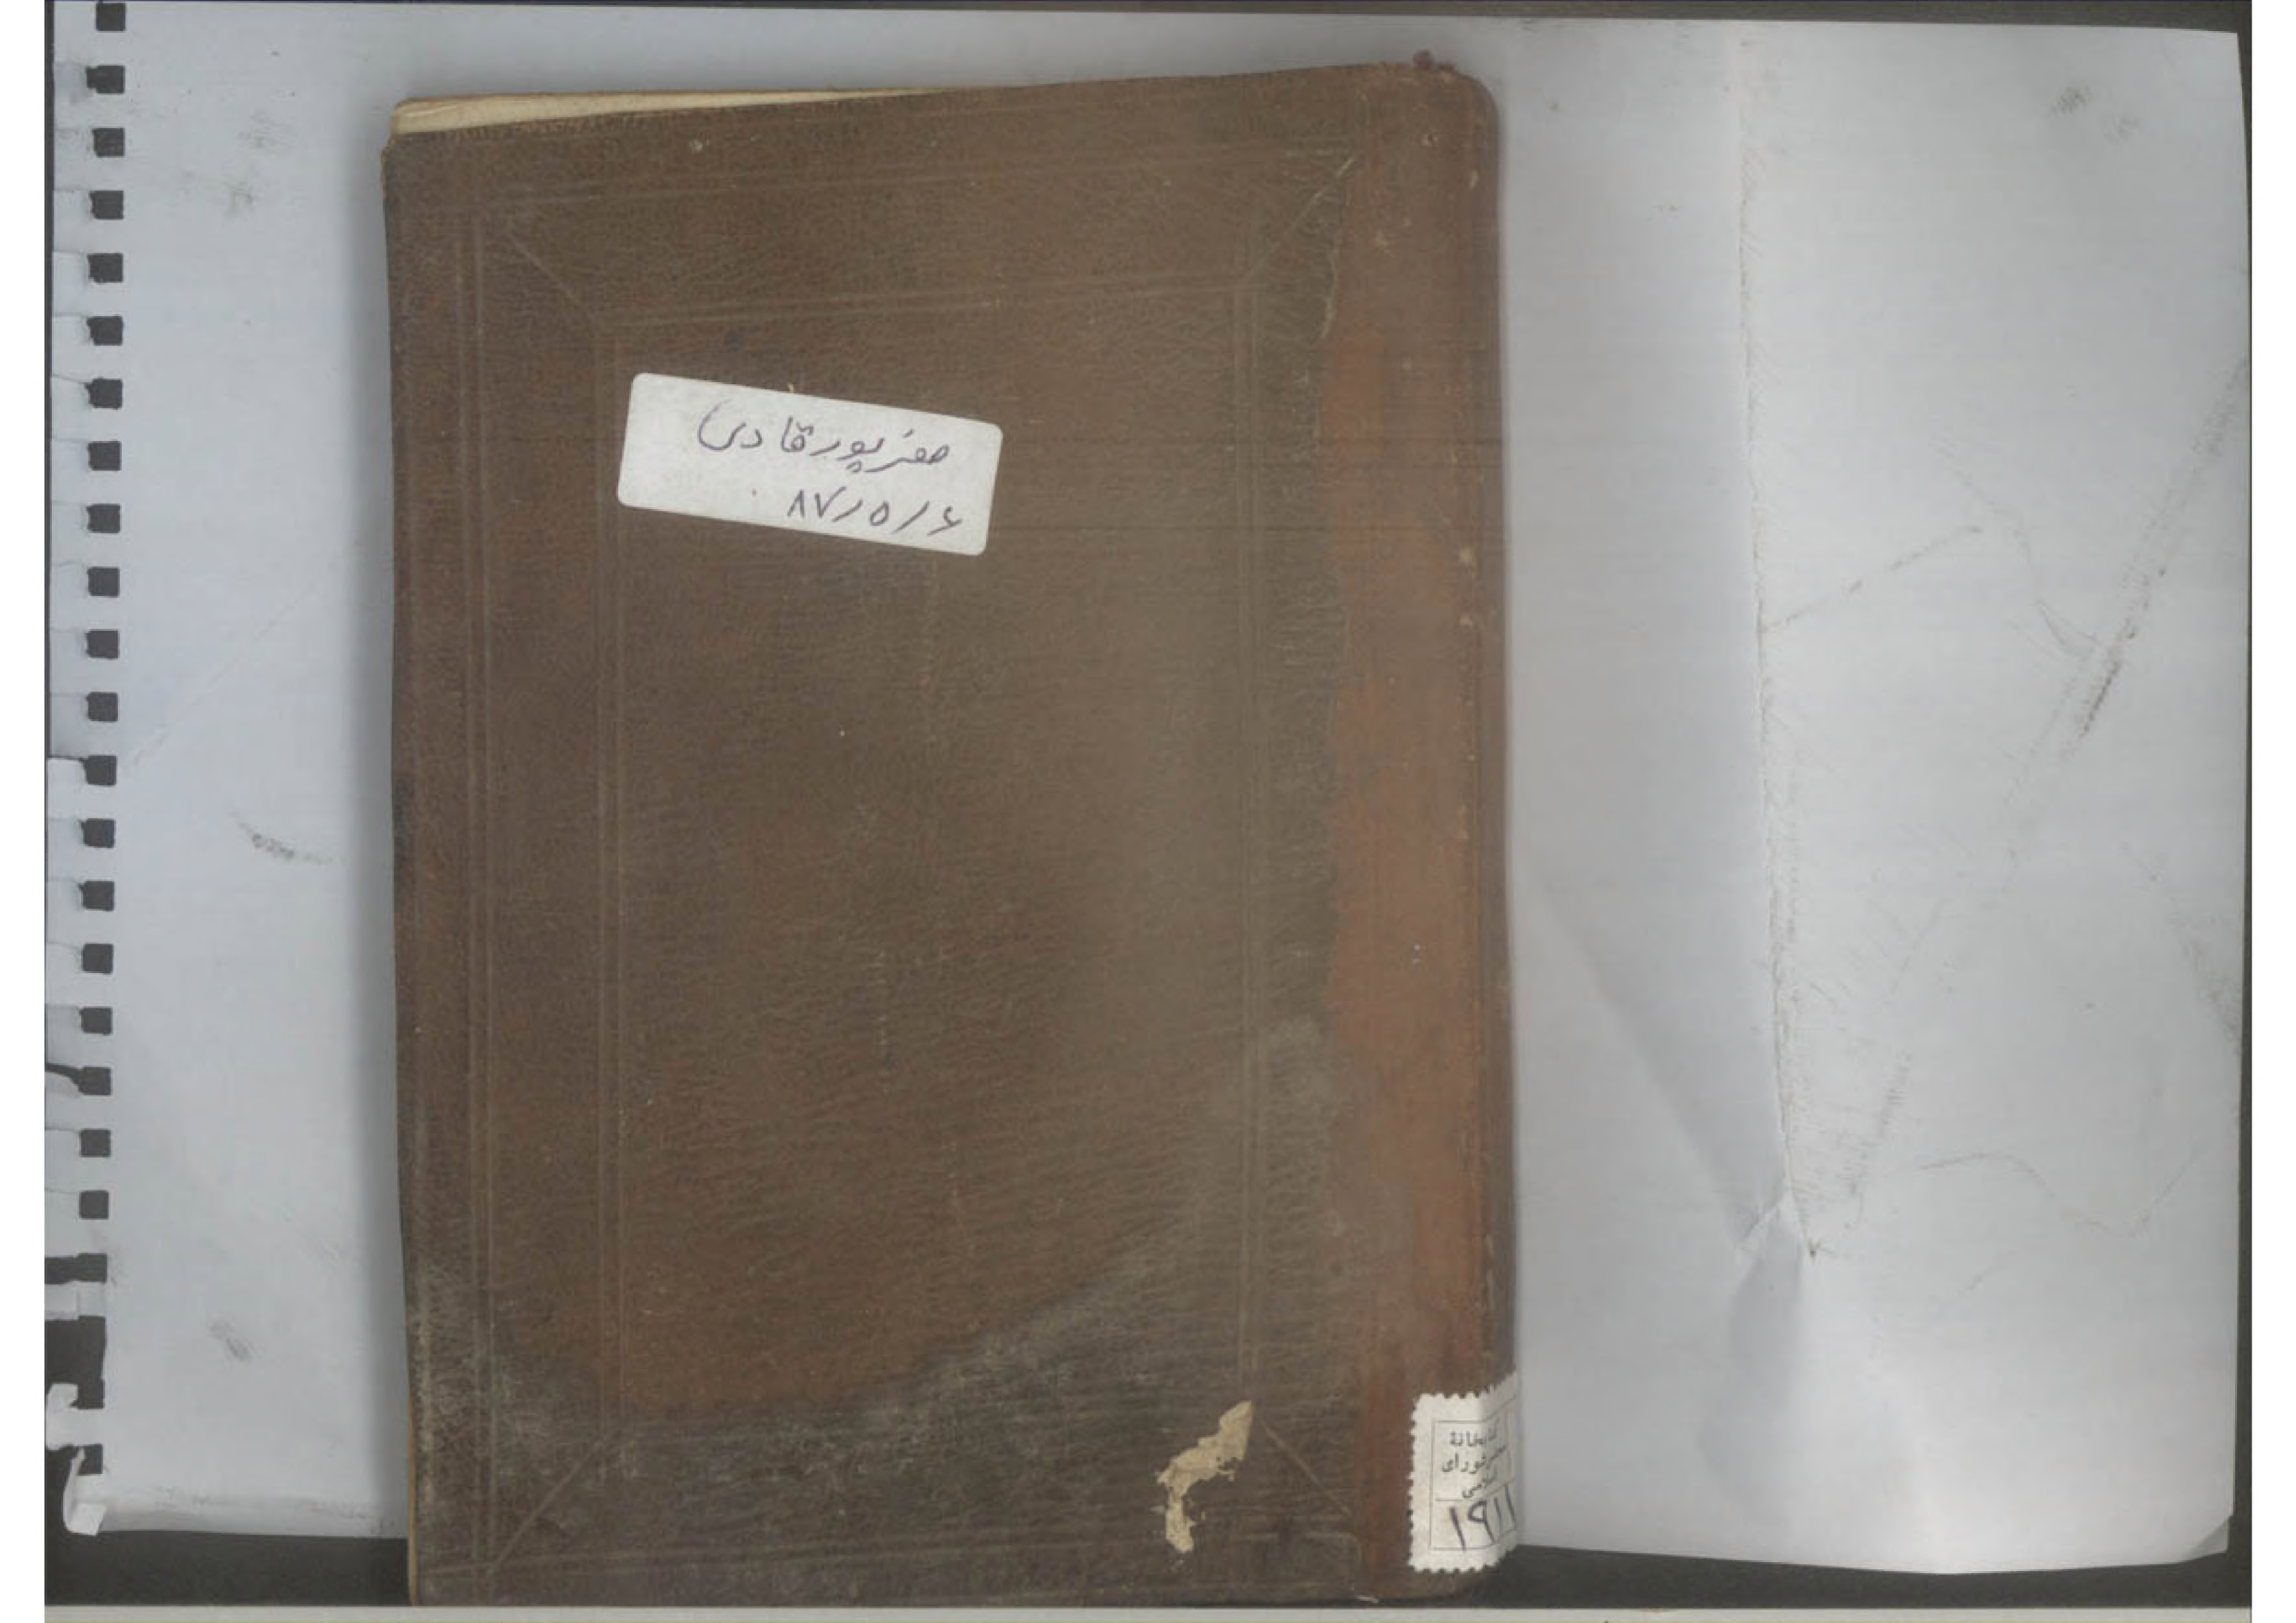 صفرپور قادی
۸۷/۵/۶
کتابخانهٔ
مجلس شورای
اسلامی
۱۹۱۱